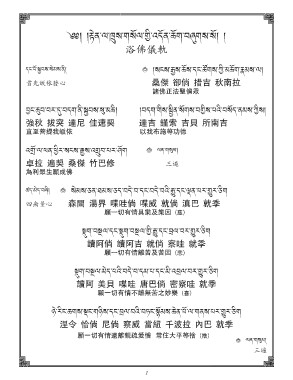 ༄༅། །རྟེན་ལ་ཁྲུས་གསོལ་གྱི་འདོན་ཆོག་བཞུགས་སོ། །
浴佛儀軌
དང་པོ་སྐྱབས་སེམས་ནི།
སངས་རྒྱས་ཆོས་དང་ཚོགས་ཀྱི་མཆོག་རྣམས་ལ།
首先皈依發心
桑傑 卻倘 措吉 秋南拉
諸佛正法聖僧眾
བྱང་ཆུབ་བར་དུ་བདག་ནི་སྐྱབས་སུ་མཆི།
བདག་གིས་སྦྱིན་སོགས་བགྱིས་པའི་བསོད་ནམས་ཀྱིས།
強秋 拔突 達尼 佳速契
達吉 蟋索 吉貝 所南吉
直至菩提我皈依
以我布施等功德
འགྲོ་ལ་ཕན་ཕྱིར་སངས་རྒྱས་འགྲུབ་པར་ཤོག
ལན་གསུམ།
卓拉 遍契 桑傑 竹巴修
三遍
為利眾生願成佛
ཚད་མེད་བཞི།
སེམས་ཅན་ཐམས་ཅད་བདེ་བ་དང་བདེ་བའི་རྒྱུ་དང་ལྡན་པར་གྱུར་ཅིག
四無量心
森間 湯界 喋哇倘 喋威 就倘 滇巴 就季
願一切有情具樂及樂因（慈）
སྡུག་བསྔལ་དང་སྡུག་བསྔལ་གྱི་རྒྱུ་དང་བྲལ་བར་གྱུར་ཅིག
讀阿倘 讀阿吉 就倘 察哇 就季
願一切有情離苦及苦因（悲）
སྡུག་བསྔལ་མེད་པའི་བདེ་བ་དམ་པ་དང་མི་འབྲལ་བར་གྱུར་ཅིག
讀阿 美貝 喋哇 唐巴倘 密察哇 就季
願一切有情不離無苦之妙樂（喜）
ཉེ་རིང་ཆགས་སྡང་གཉིས་དང་བྲལ་བའི་བཏང་སྙོམས་ཆེན་པོ་ལ་གནས་པར་གྱུར་ཅིག
願一切有情遠離親疏愛憎 常住大平等捨（捨）
ལན་གསུམ།
三遍
1